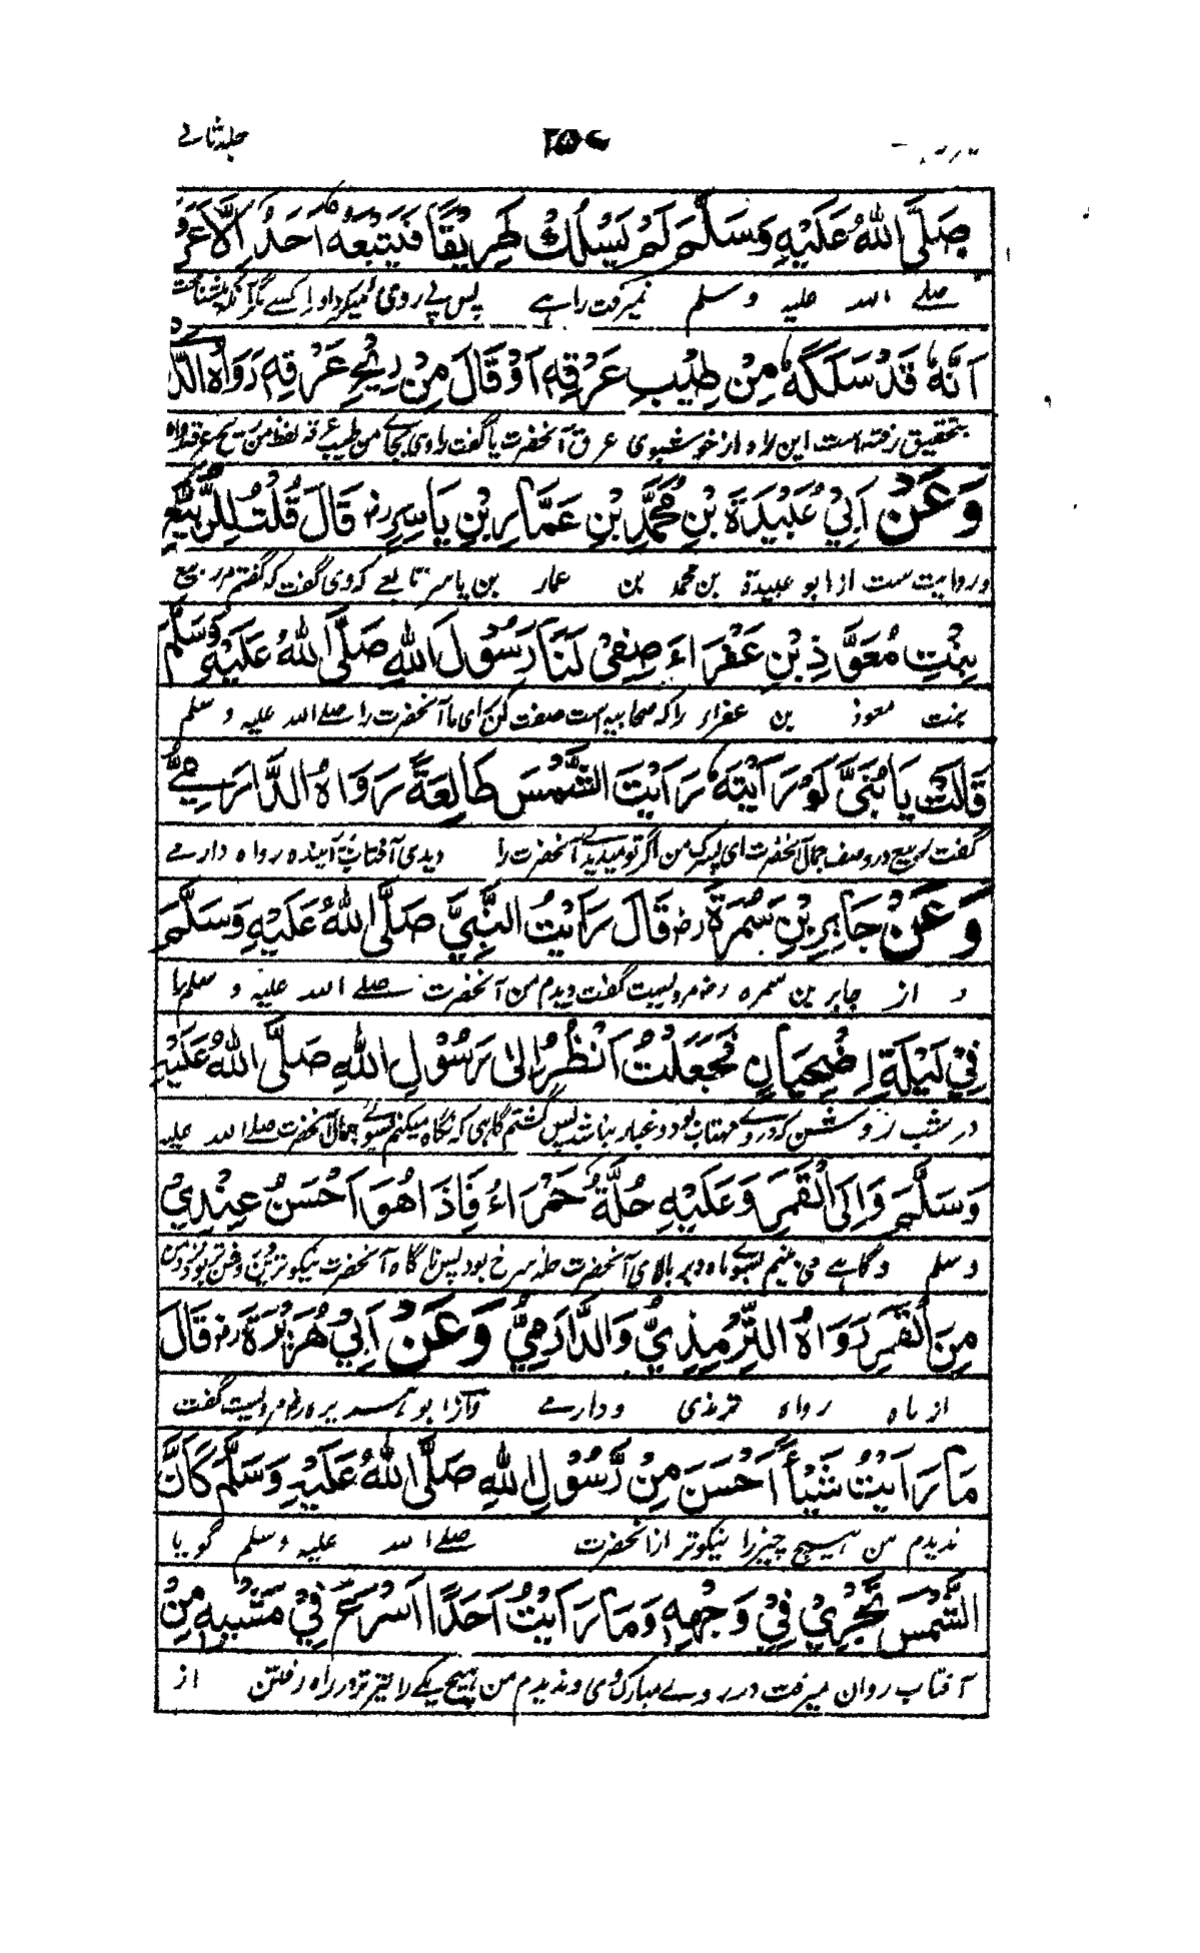 جلد ثانے
صَلَّى اللهُ عَلَيْهِ وَسَلَّمَ لَمْ يَسْلُكْ طَرِيْقًا فَيَتْبَعُهُ اَحَدٌ اِلَّا عَرَفَ
صلے اللہ علیہ وسلم نمیرفت راہے پس پے روی نمیکرد او را کسے مگر آنکہ میشناخت
اَنَّهٗ قَدْ سَلَكَهٗ مِنْ طِيْبِ عَرْقِهٖ اَوْ قَالَ مِنْ رِيْحِ عَرْقِهٖ رَوَاهُ الدَّ
بتحقیق رفتہ است این راہ از خوشبوی عرق آنحضرت یا گفت راوی بجاے من طیب عرقہ لفظ من ریح عرقہ رواہ
وَعَنْ اَبِيْ عُبَيْدَةَ بْنِ مُحَمَّدِ بْنِ عَمَّارِ بْنِ يَاسِرٍ رض قَالَ قُلْتُ لِلرُّبَيِّعِ
و روایت ست از ابو عبیدة بن محمد بن عمار بن یاسر تابعے کہ وی گفت کہ گفتم مر ربیع
بِنْتِ مُعَوَّذِ بْنِ عَفْرَاءَ صِفِيْ لَنَا رَسُوْلَ اللهِ صَلَّى اللهُ عَلَيْهِ وَسَلَّمَ
بنت معوذ بن عفراء را کہ صحابیہ است صفت کن برای ما آنحضرت را صلے اللہ علیہ و سلم
قَالَتْ يَا بُنَيَّ لَوْ رَاَيْتَهٗ رَاَيْتَ الشَّمْسَ طَالِعَةً رَوَاهُ الدَّارَمِيُّ
گفت ربیع در وصف جمال آنحضرت ای پسرک من اگر تو میدیدے آنحضرت را دیدی آفتاب برآیندہ رواہ دارمے
وَعَنْ جَابِرِ بْنِ سَمُرَةَ رض قَالَ رَاَيْتُ النَّبِيَّ صَلَّى اللهُ عَلَيْهِ وَسَلَّمَ
و از جابر بن سمرہ رض مرویست گفت دیدم من آنحضرت صلے اللہ علیہ و سلم را
فِيْ لَيْلَةٍ اِضْحِيَانٍ فَجَعَلْتُ اَنْظُرُ اِلٰى رَسُوْلِ اللهِ صَلَّى اللهُ عَلَيْهِ
در شب روشن کہ در وے مہتاب بود و غبار نباشد پس گشتم گاہی کہ نگاہ میکنم بسوے جمال آنحضرت صلے اللہ علیہ
وَسَلَّمَ وَاِلَى الْقَمَرِ وَعَلَيْهِ حُلَّةٌ حَمْرَاءُ فَاِذَا هُوَ اَحْسَنُ عِنْدِيْ
و سلم و گاہے می بینم بسوے ماہ و بر بالای آنحضرت حلہ سرخ بود پس ناگاہ آنحضرت نیکوترین
مِنَ الْقَمَرِ رَوَاهُ التِّرْمِذِيُّ وَالدَّارَمِيُّ وَعَنْ اَبِيْ هُرَيْرَةَ رض قَالَ
از ماہ رواہ ترمذی و دارمے و از ابو ہریرہ رض مرویست گفت
مَا رَاَيْتُ شَيْأً اَحْسَنَ مِنْ رَسُوْلِ اللهِ صَلَّى اللهُ عَلَيْهِ وَسَلَّمَ كَاَنَّ
ندیدم من ہیچ چیز را نیکوتر از آنحضرت صلے اللہ علیہ وسلم گویا
الشَّمْسَ تَجْرِيْ فِيْ وَجْهِهٖ وَمَا رَاَيْتُ اَحَدًا اَسْرَعَ فِيْ مَشْيِهٖ مِنْ
آفتاب روان میرفت در روے مبارک وی و ندیدم من ہیچ یکے را تیزتر در راہ رفتن از